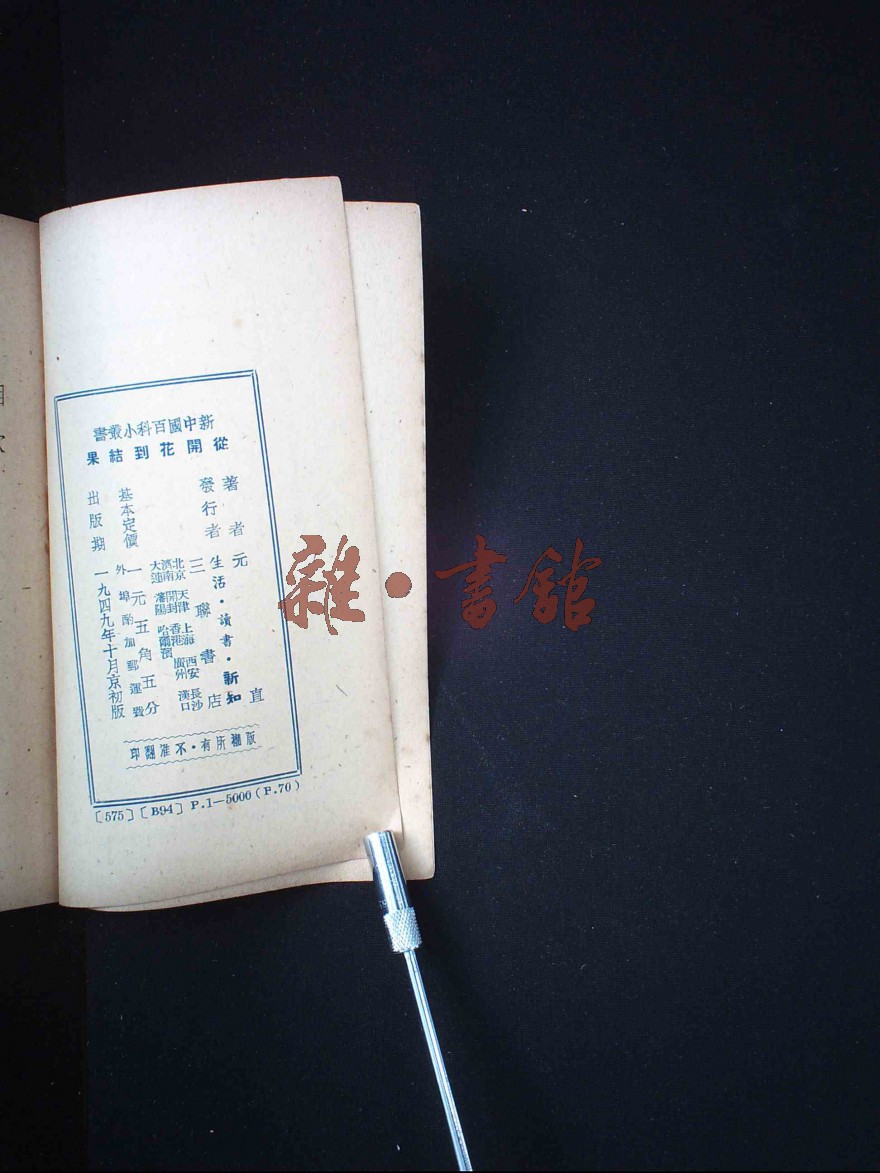 新中國百科小叢書
從開花到結果
著者 元直
發行者 生活·讀書·新知
三聯書店
北京 濟南 大連
天津 開封 瀋陽
上海 香港 哈爾濱
西安 廣州
長沙 漢口
基本定價 一元五角五分
外埠酌加郵運費
出版期 一九四九年十月京初版
版權所有·不准翻印
[575] [B94] P.1—5000 (P.70)
雜·書館